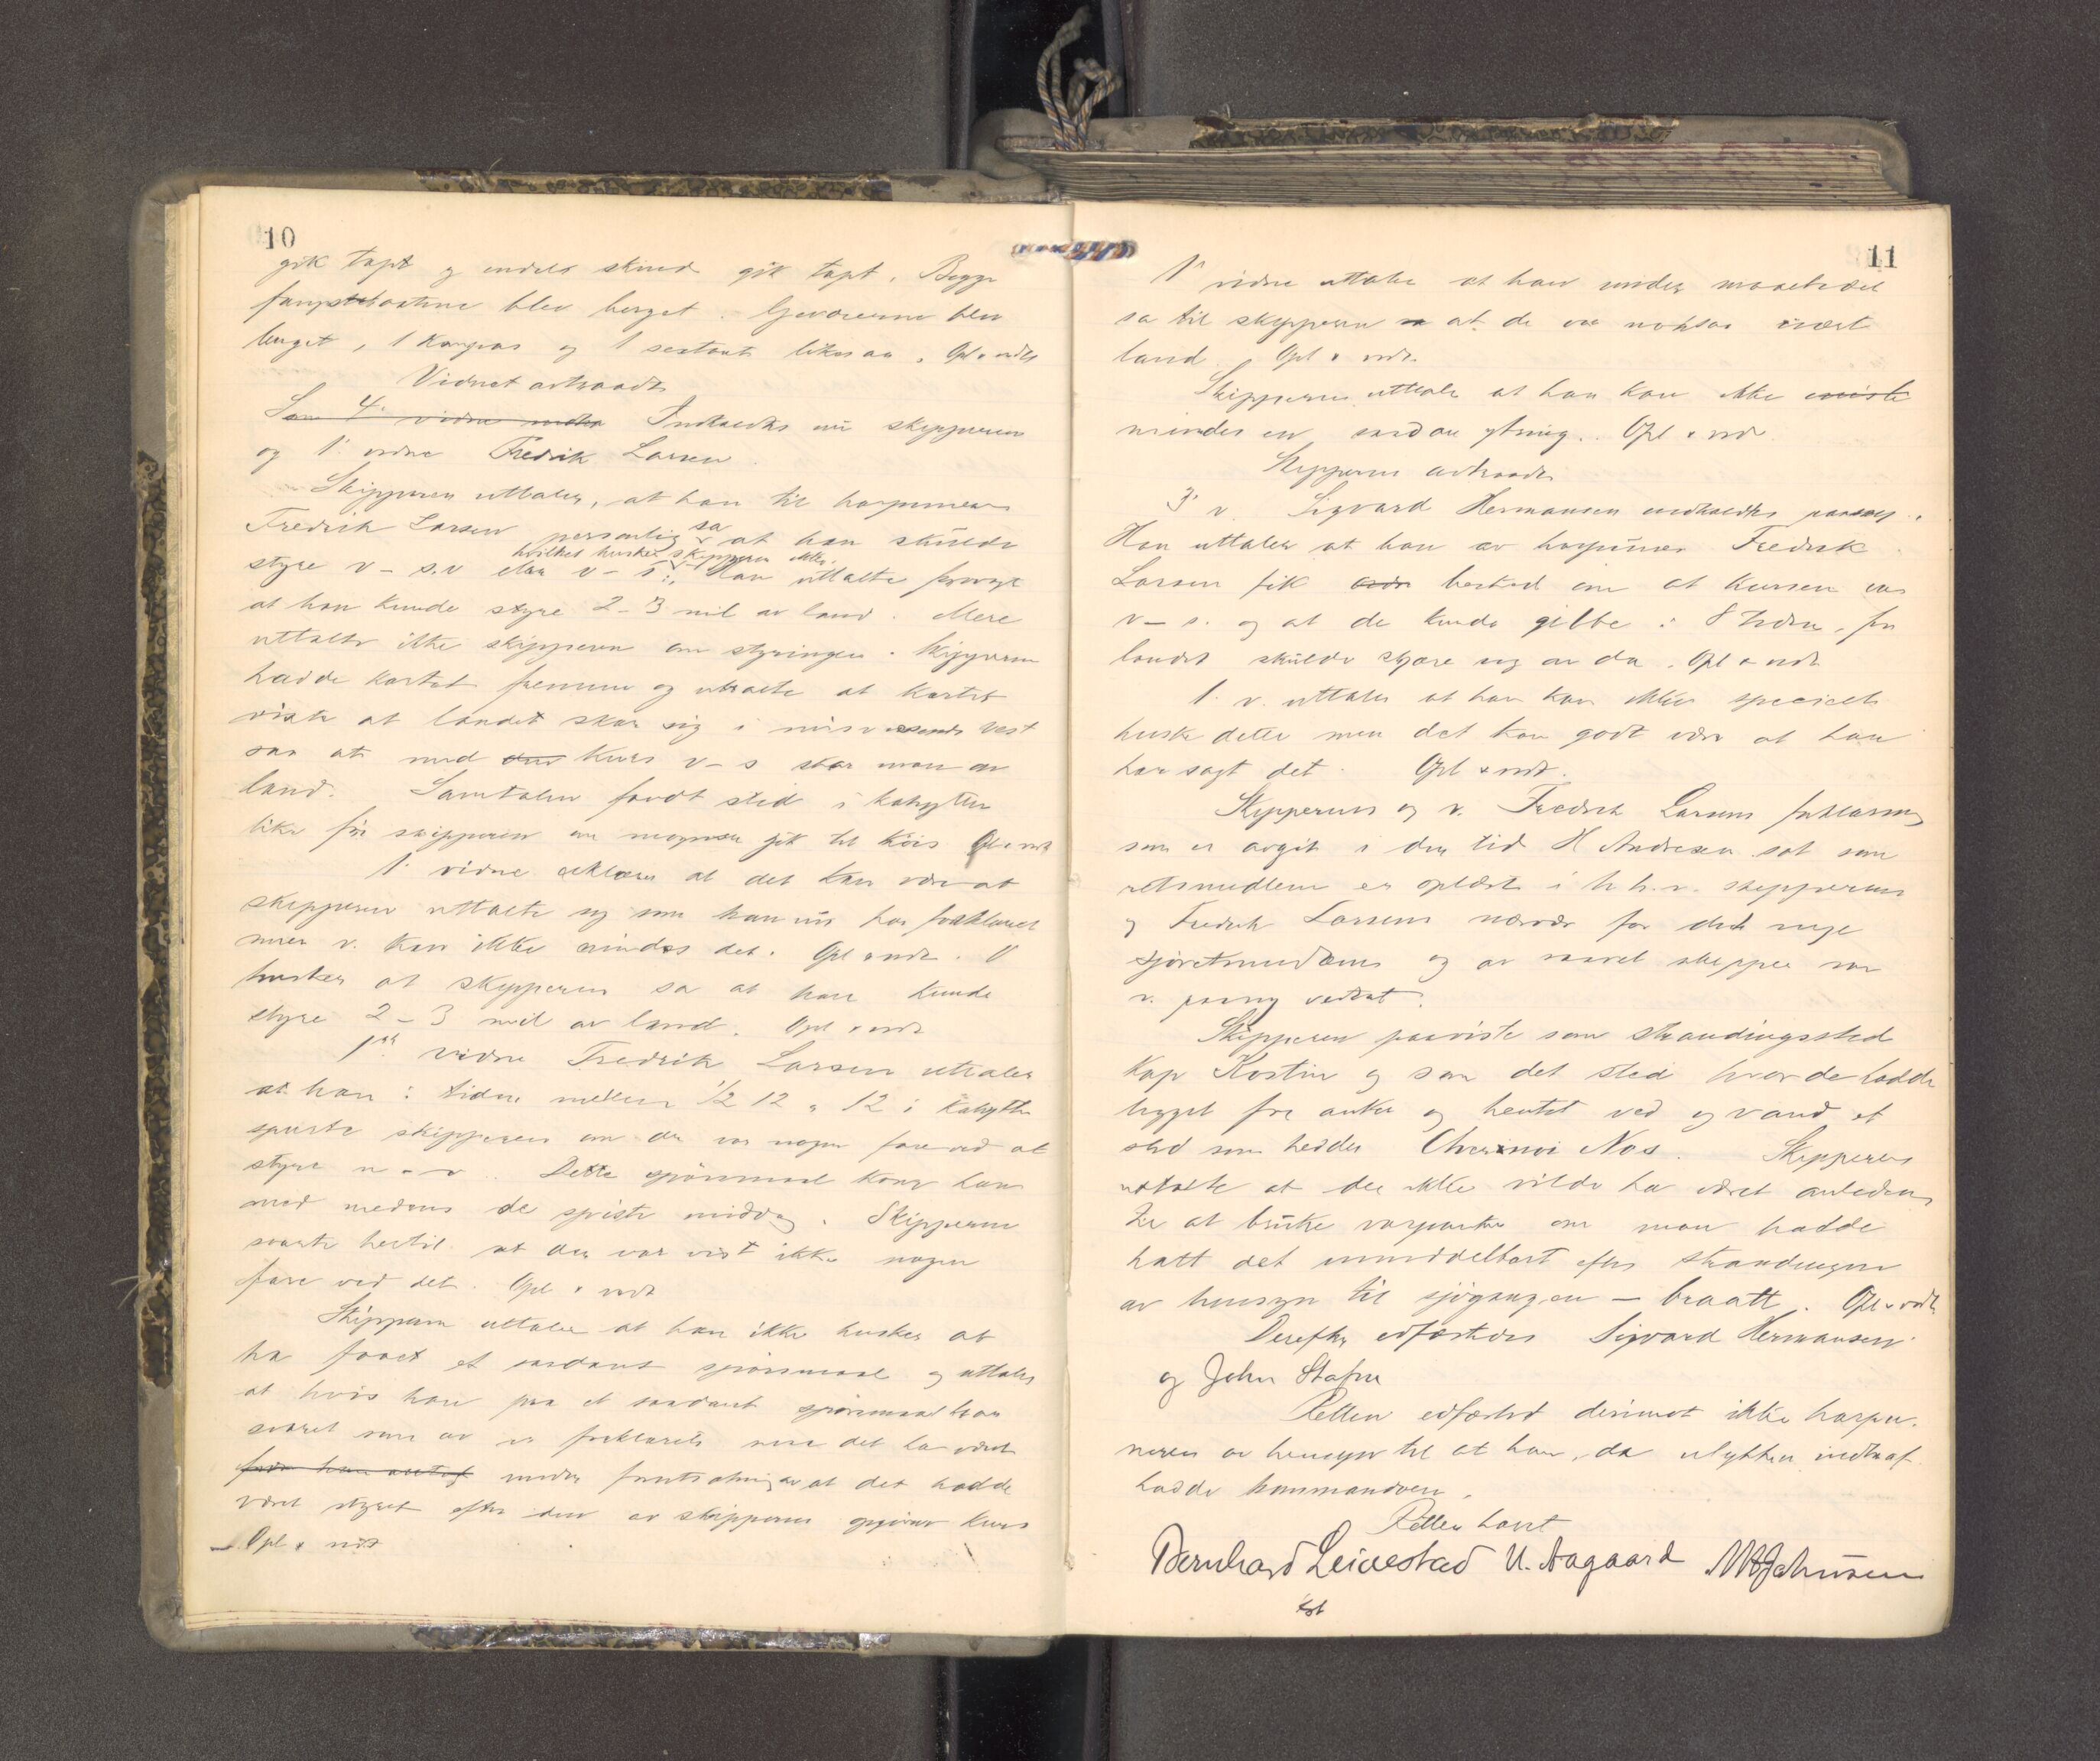 10
gik tapt og endels skind gik tapt. Begge
fangstbaatene blev berget. Geværerne blev
berget, 1 kompas og 1 sextant likesaa. Opl & vedt
Vidnet avtraadte
Som 4' vidne Indkaldtes nu skipperen
og 1' vidne Fredrik Larsen.
Skipperen uttaler, at han til harpuneren
Fredrik Larsen personlig sa at han skulde
hvilket husker skipperen ikke.
styre v - s.v eller v - s. Han uttalte forøvrigt
at han kunde styre 2-3 mil av land. Mere
uttalte ikke skipperen om styringen. Skipperen
hadde kartet fremme og uttalte at kartet
viste at landet skar sig i misvisende vest
saa at med den kurs v - s skar man av
land. Samtalen fandt sted i kahytten
like før skipperen om morgenen gik til køis Opl & vedt
1' vidne erklærer at det kan være at
skipperen uttalte sig som han nu har forklaret
men v. kan ikke mindes det. Opl & vedt. V
husker at skipperen sa at han kunde
styre 2-3 mil av land. Opl & vedt
1ste vidne Fredrik Larsen uttaler
at han i tiden mellem 1/2 12 og 12 i kahytten
spurte skipperen om der var nogen fare ved at
styre Dette spørsmaal kom han
med medens de spiste middag. Skipperen
svarte hertil at der var vist ikke nogen
fare ved det. Opl & vedt
Skipperen uttaler at han ikke husker at
ha faaet et saadant spørsmaal og uttaler
at hvis han paa et saadant spørsmaal har
svaret som av v. forklaret maa det ha været
under forutsætning av at det hadde
været styret efter den av skipperen opgivne kurs
Opl & vedt
11
1' vidne uttaler at han under maaltidet
sa til skipperen at de var noksaa nært
land. Opl & vedt.
Skipperen uttaler at han kan ikke
mindes en saadan ytring. Opl & vedt
Skipperen avtraadte
3' v. Sigvard Hermansen indkaldtes paany.
Han uttaler at han av harpuner Fredrik
Larsen fik besked om at kursen var
v - s. og at de kunde gibbe i 8 tiden, for
landet skulde skjære sig av da. Opl & vedt
1. v. uttaler at han kan ikke specielt
huske dette men det kan godt være at han
har sagt det. Opl & vedt.
Skipperens og v. Fredrik Larsens forklaring
som er avgit i den tid H Andresen sat som
retsmedlem er oplæst i h.h.v. skipperens
og Fredrik Larsens nærvær for det nye
sjøretsmedlem og av saavel skipper som
v. paany vedtat.
Skipperen paaviste som strandingssted
Kap Kostin og som det sted hvor de hadde
ligget for anker og hentet ved og vand et
sted som hedder Chernoi Nos. Skipperen
uttalte at der ikke vilde ha været anledning
til at bruke varpanker om man hadde
hatt det umiddelbart efter strandingen
av hensyn til sjøgangen - braatt. Opl & vedt
Derefter edfæstedes Sigvard Hermansen
og John Stafne
Retten edfæstet derimot ikke harpu-
neren av hensyn til at han, da ulykken indtraf
hadde kommandoen.
Retten hævet
Bernhard Leivestad U. Aagaard Johnsen